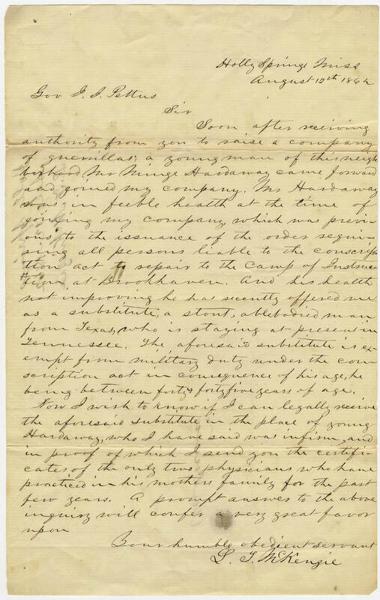 Holly Springs Miss
August 12th 1862
Gov. J. J. Pettus
Sir
Soon after receiving
authority from you to raise a company
of guerrillas; a young man of this neigh
borhood, Mr Minge Hardaway came forward
and joined my company. Mr Hardaway
was in feeble health at the time of
joining my company, which was previ-
ous to the issuance of the order requi-
ring all persons liable to the conscrip
tion act to repair to the Camp of Instruc
tion at Brookhaven. And his health
not improving he has recently offered me
as a substitute, a stout, ablebodied man
from Texas, who is staying at present in
Tennessee. The aforesaid substitute is ex
empt from military duty under the con
scription act in consequence of his age, he
being between forty & forty five years of age.
Now I wish to know if I can legally receive
the aforesaid substitute in the place of young
Hardaway, who I have said was infirm, and
in proof of which I send you the certifi
cates of the only two physicians who have
practiced in his mothers family for the past
few years. A prompt answer to the above
inquiry will confer a very great favor
upon
Your humble obedient servant
L. T. McKenzie